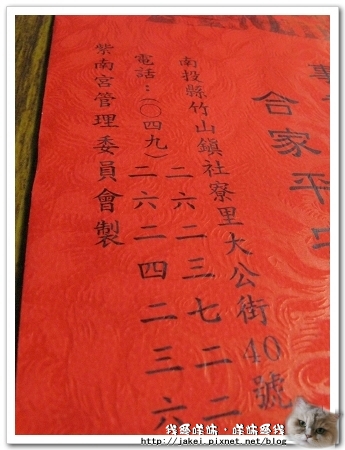 合家平
南投縣竹山鎮社寮里大公街40號
電話：(〇四九)二六二三七二二
二六二四二三六
紫南宮管理委員會製
http://jakei.pixnet.net/blog